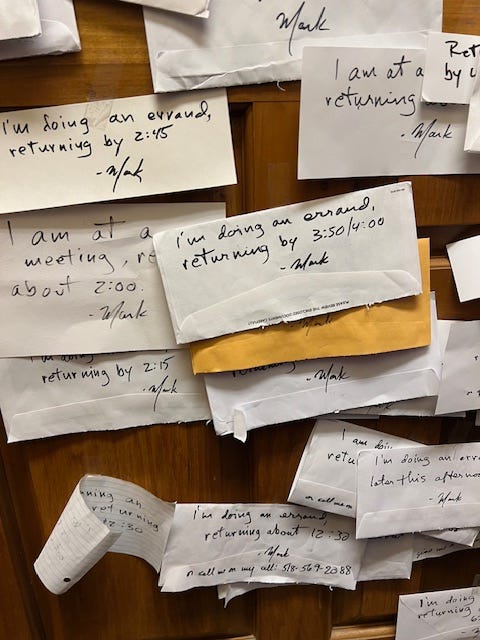 Mark
I'm doing an errand,
returning by 2:45
-Mark
I am at a
returning
-Mark
Ret
by
I am at a
meeting, re
about 2:00.
-Mark
I'm doing an errand,
returning by 3:50/4:00
-Mark
PLEASE REVIEW THE ENCLOSED DOCUMENTS CAREFULLY
Mark
I'm doing
returning by 2:15
-Mark
returning
-Mark
I am doi
retu
or call me m
I'm doing an erra
later this afternoo
-Mark
ning an
returning
12:30
I'm doing an errand,
returning about 12:30
-Mark
or call me on my cell: 518-569-2088
I'm doing
returning